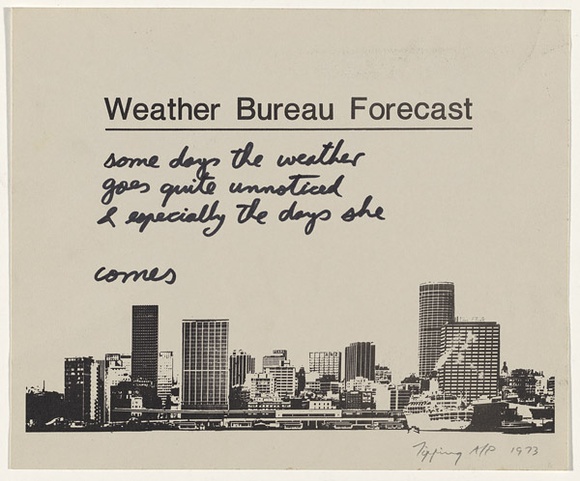 Weather Bureau Forecast
some days the weather
goes quite unnoticed
& especially the days she
comes
Tipping A/P 1973